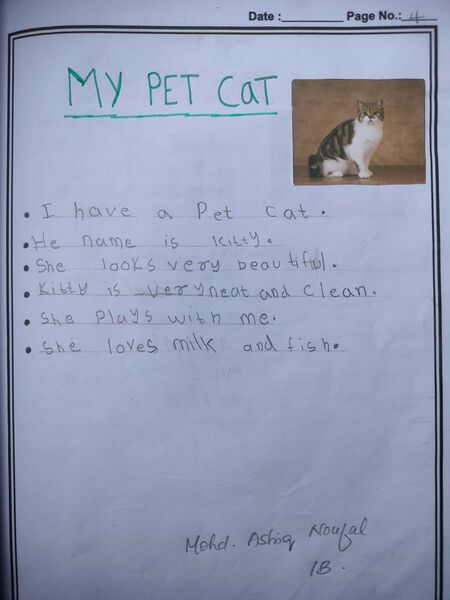 Date : Page No.: 4
MY PET CaT
• I have a Pet cat.
• He name is kitty.
• She looks very beautiful.
• Kitty is very neat and clean.
• She Plays with me.
• She loves milk and fish.
Mohd. Ashiq Noufal
1B.